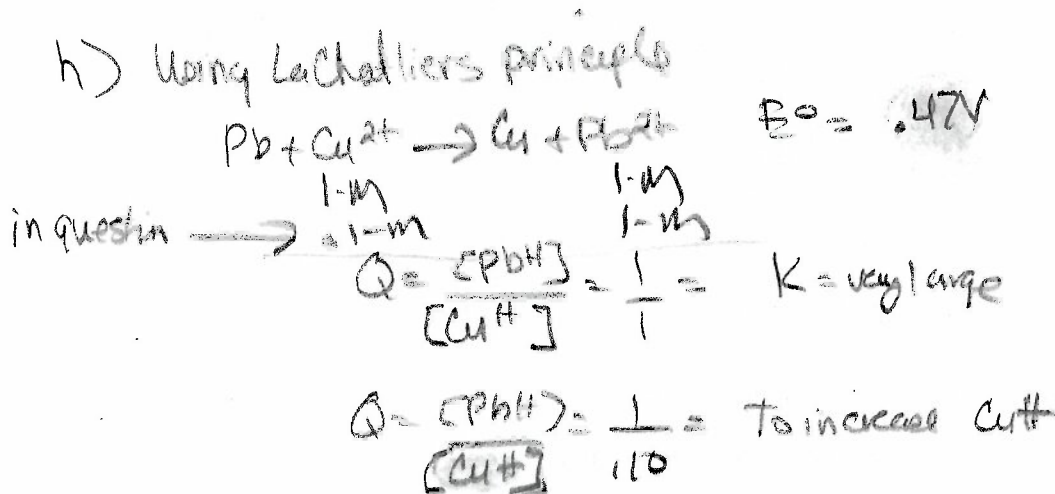 h) Using LeChatliers principle
Pb + Cu2+ → Cu + Pb2+ E° = .47V
1-M 1-M
in question → .1-M 1-M
Q = [Pb++] / [Cu++] = 1/1 = K = very large
Q = [Pb++] / [Cu++] = 1/.10 = To increase Cu++